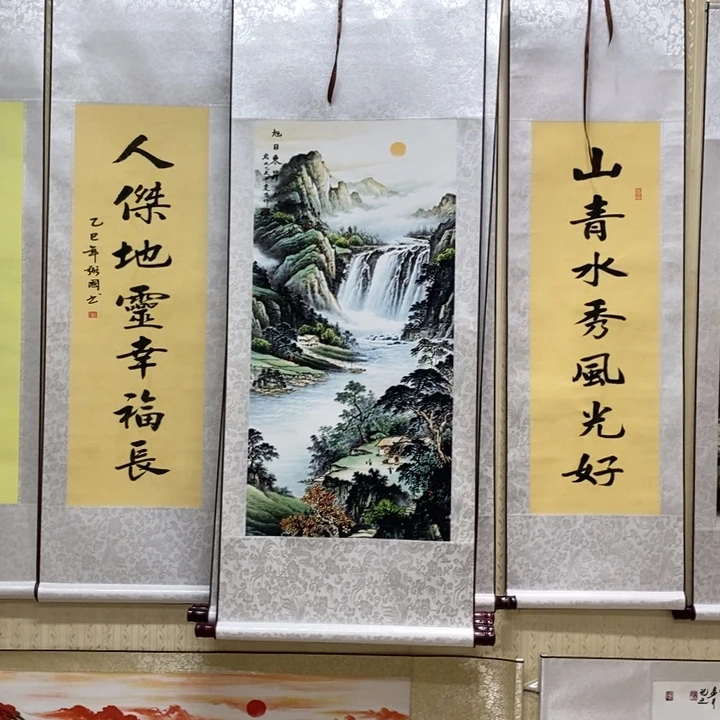 山青水秀風光好
旭日東昇
人傑地靈幸福長
乙巳年